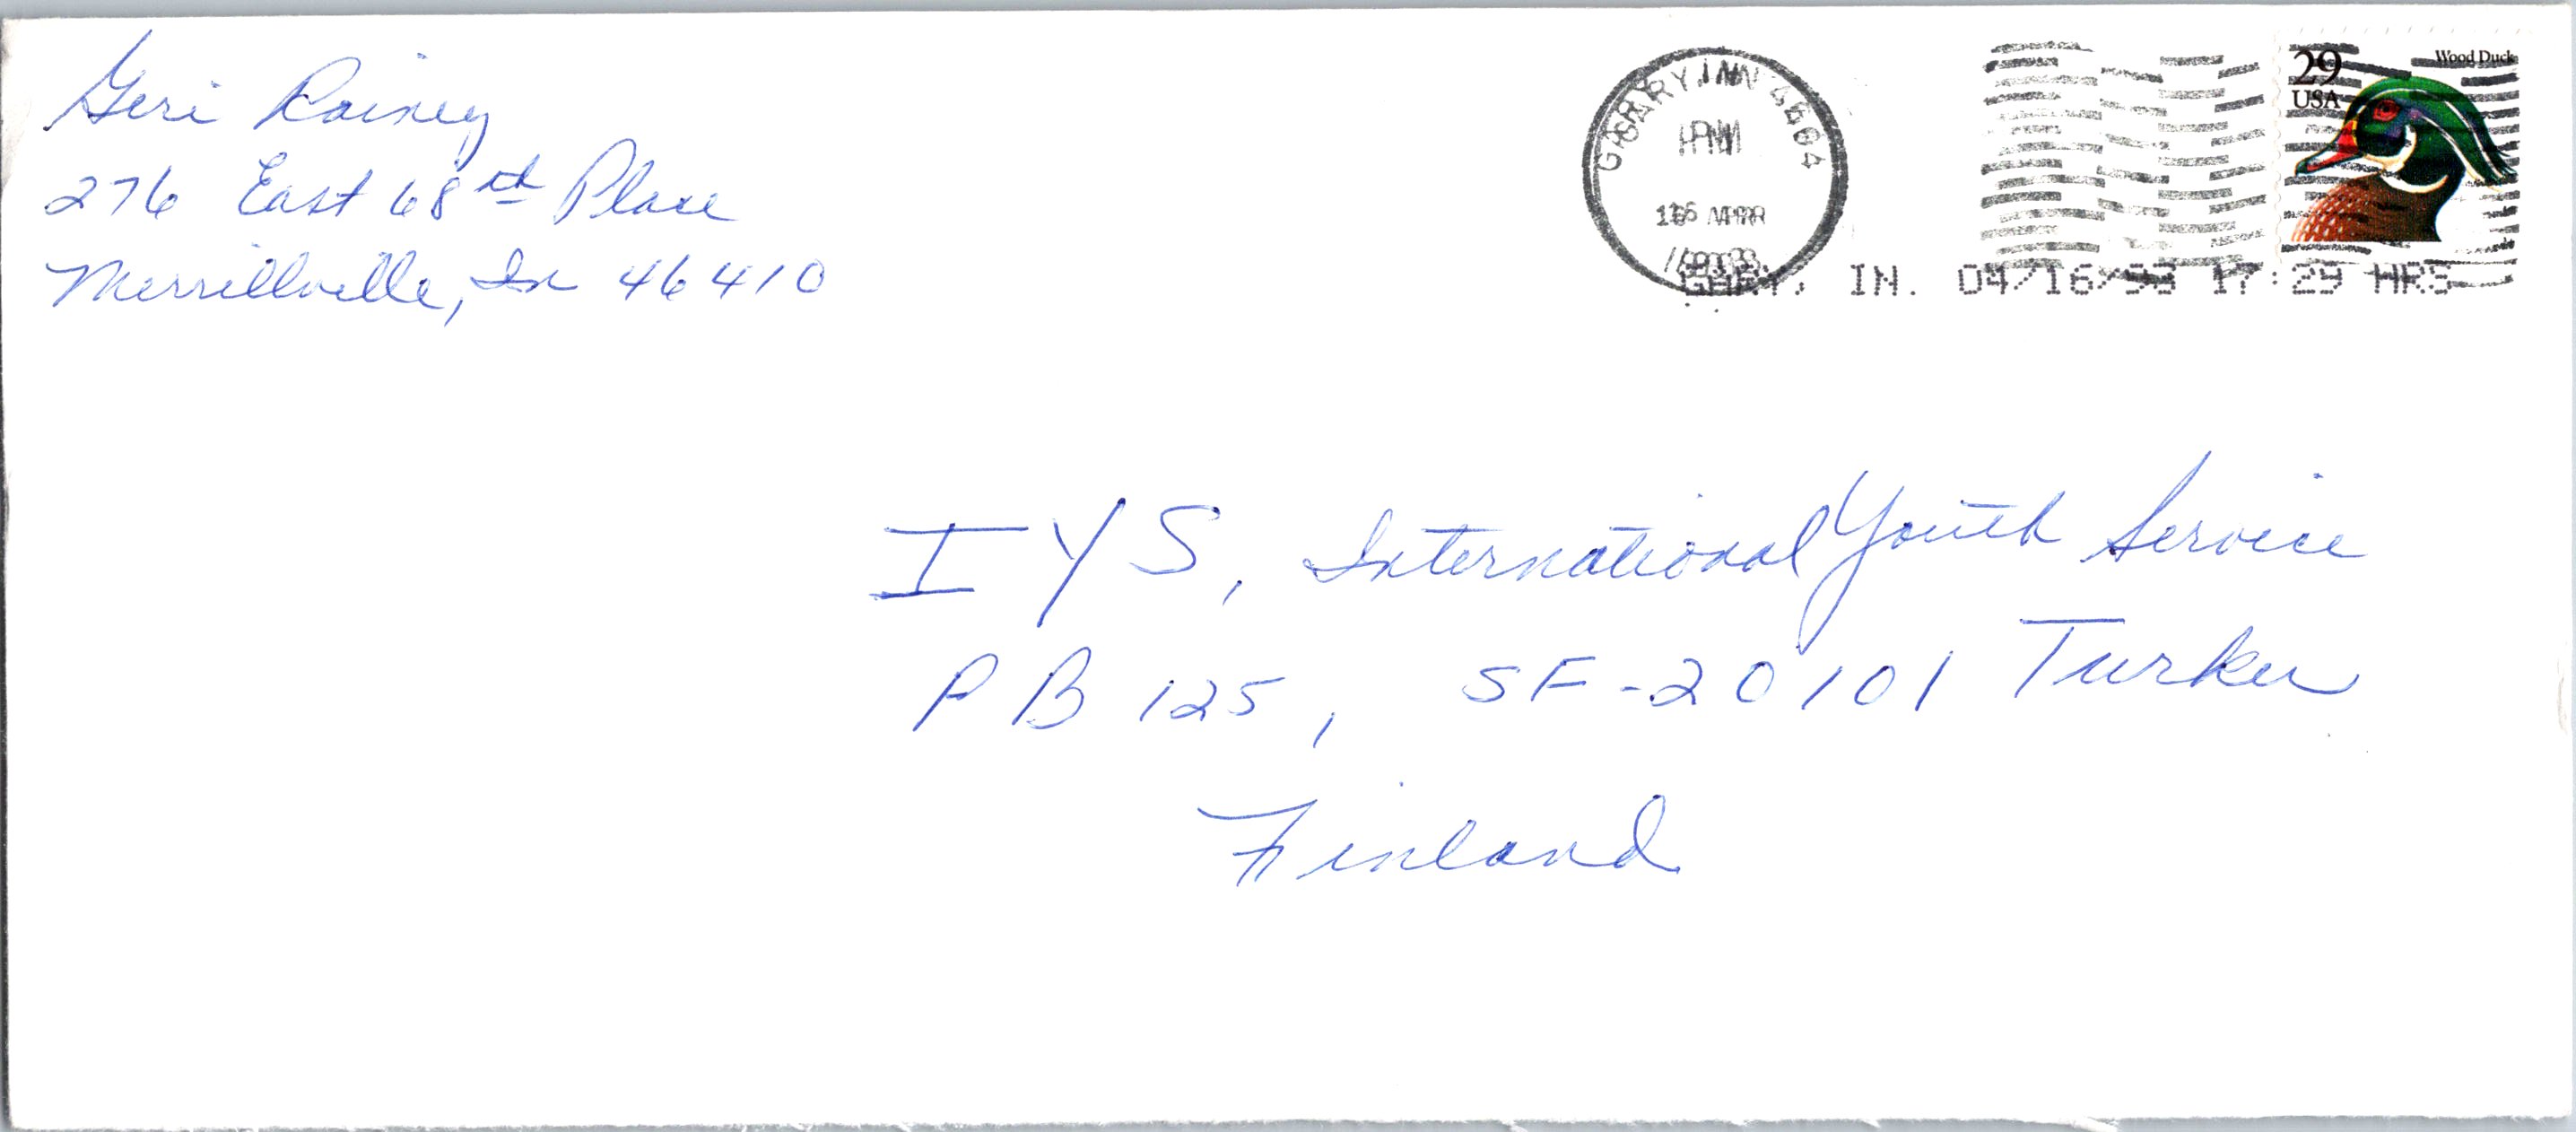 Geri Rainey
276 East 68th Place
Merrillville, In 46410
GARY, IN 464
PM
16 APR
1993
GARY, IN. 04/16/93 17:29 HRS
29
USA
Wood Duck
I Y S, International Youth Service
P B 125, SF-20101 Turku
Finland